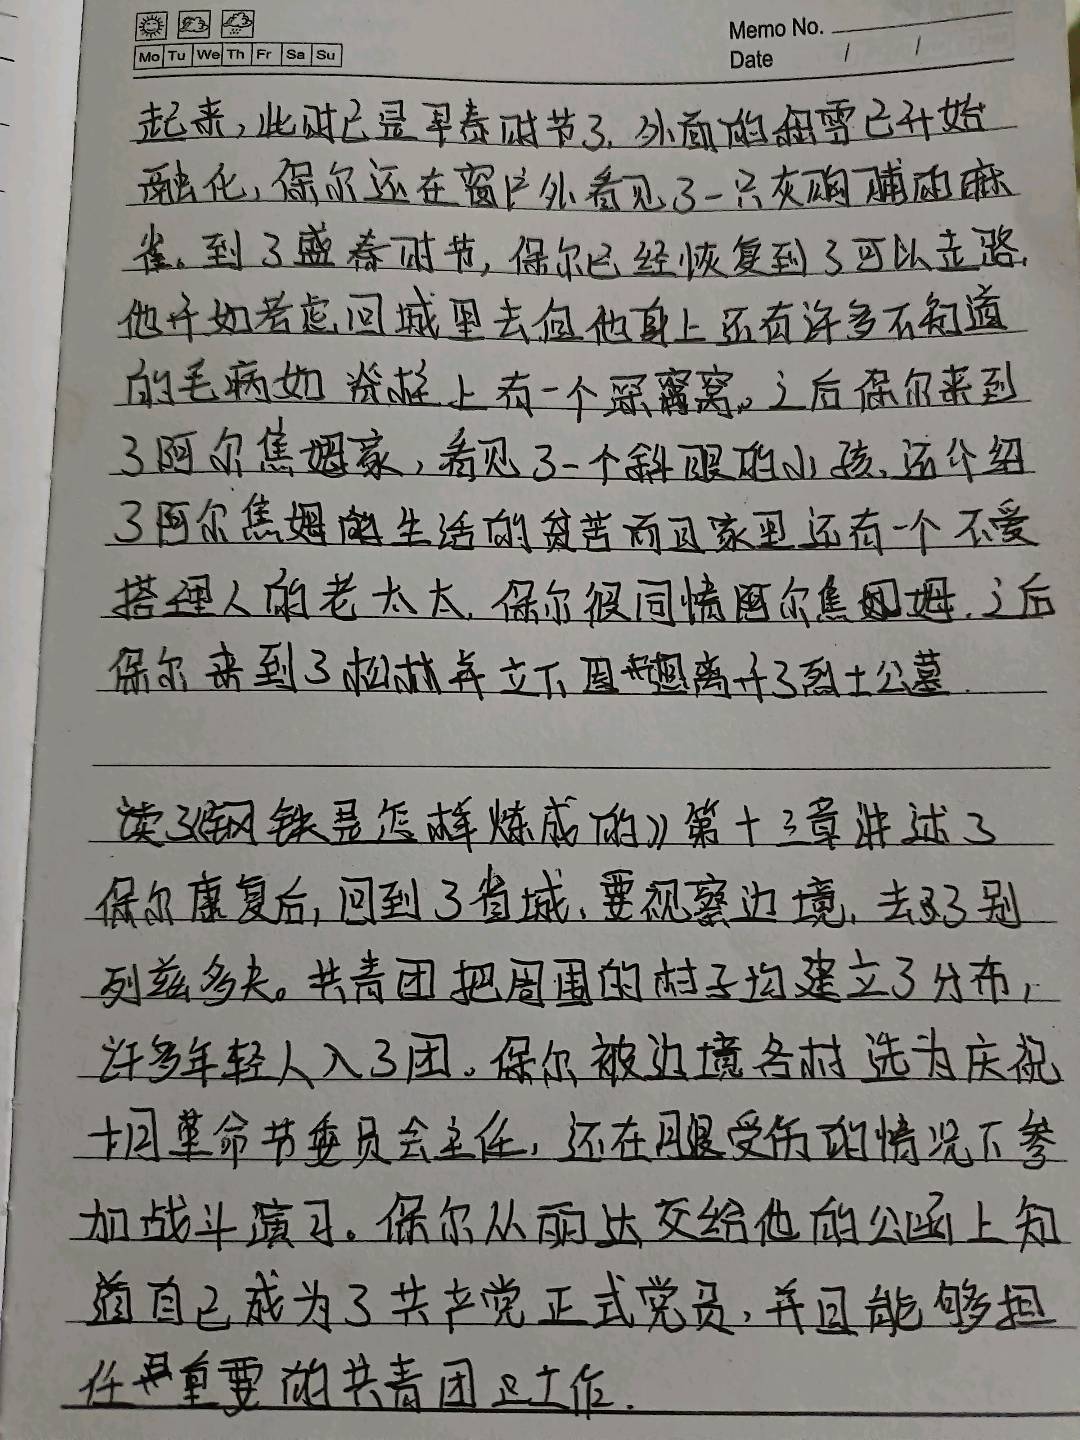 Memo No.
Mo Tu We Th Fr Sa Su
Date / /
起来,此时已是早春时节了.外面的细雪已开始
融化,保尔还在窗户外看见了一只灰胸脯的麻
雀。到了盛春时节,保尔已经恢复到了可以走路.
他开如考虑回城里去但他身上还有许多不知道
的毛病如脊柱上有一个深窝。之后保尔来到
了阿尔焦姆家,看见了一个斜眼的小孩.还介绍
了阿尔焦姆的生活的贫苦而且家里还有一个不爱
搭理人的老太太.保尔很同情阿尔焦姆.之后
保尔来到了松林并立下思想离开了烈士公墓.
读了《钢铁是怎样炼成的》第十三章讲述了
保尔康复后,回到了省城.要视察边境.去了别
列兹多夫。共青团把周围的村子均建立了分布,
许多年轻人入了团。保尔被边境各村选为庆祝
十月革命节委员会主任,还在腿受伤的情况下参
加战斗演习。保尔从丽达交给他的公函上知
道自己成为了共产党正式党员,并且能够担
任重要的共青团工作.